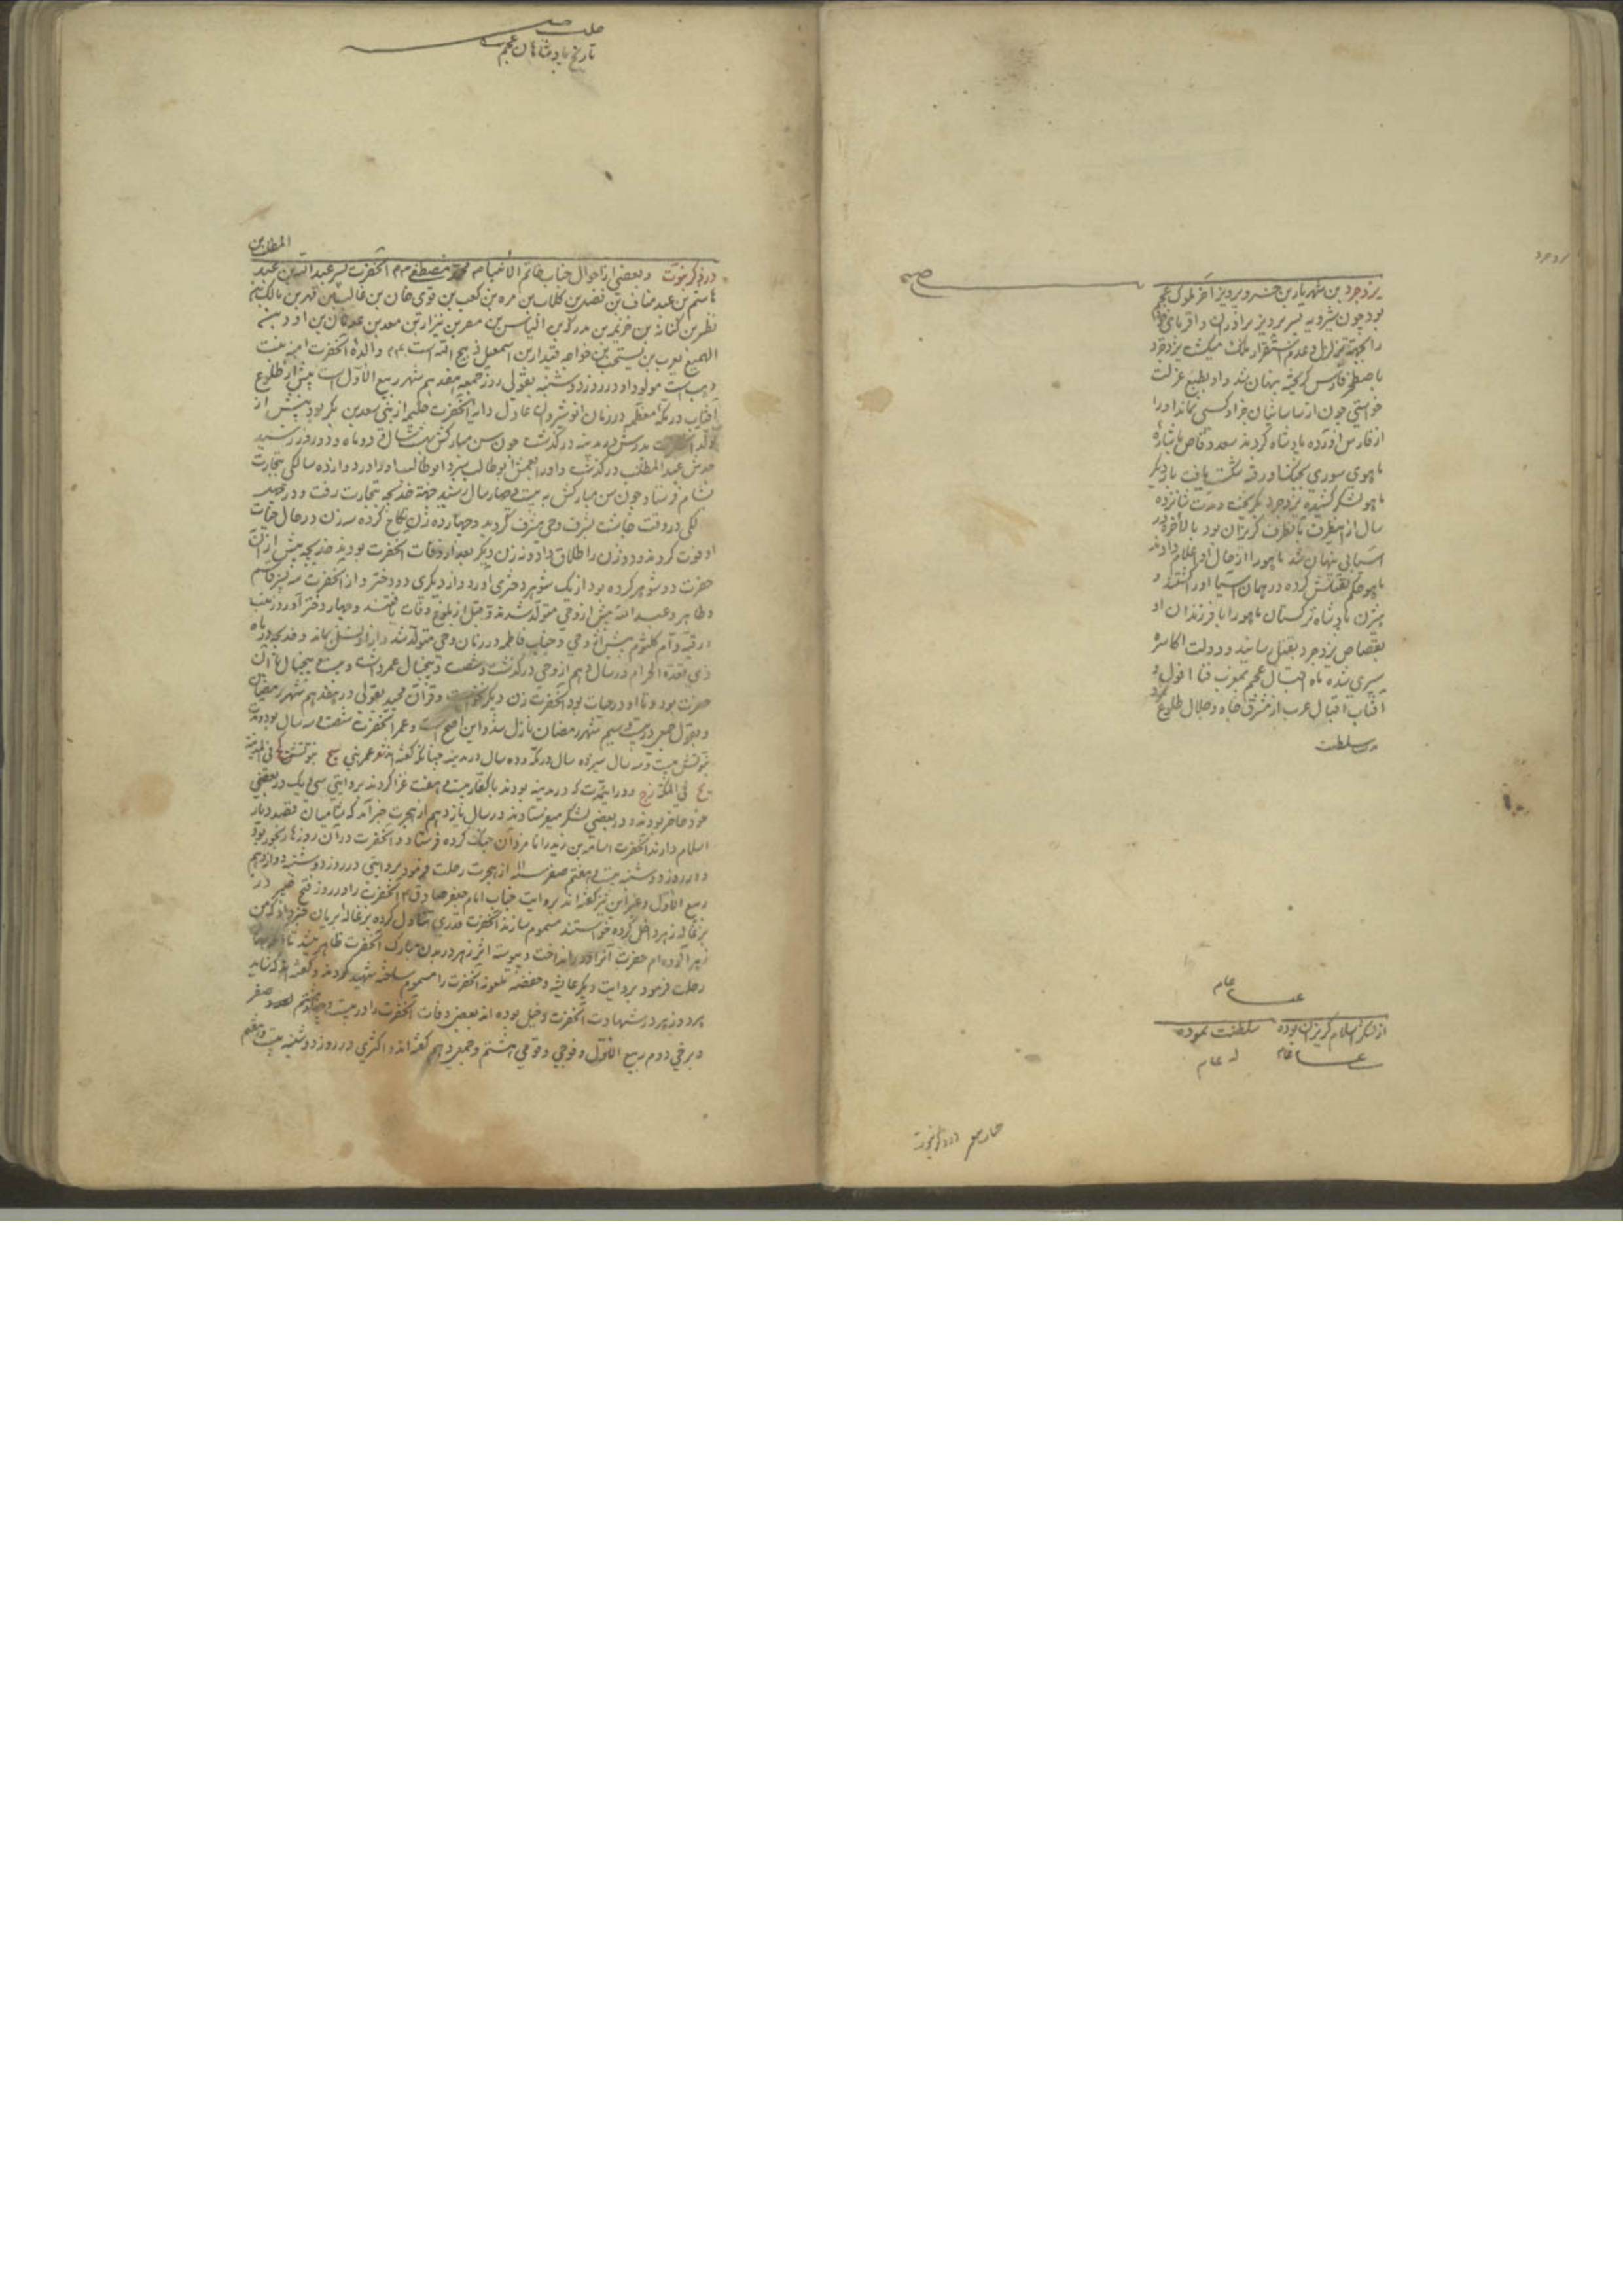 یزدجرد بن شهریار بن خسرو پرویز آخر ملوک عجم
بود چون شیرویه پسر پرویز برادران و اقربای
را بجهة تزلزل و عدم استقرار ملک میکشت یزدجرد
باصطخر فارس گریخته پنهان شد و او بطبع عزلت
خواستی چون از ساسانیان جز او کسی نماند او را
از فارس آورده پادشاه کردند سعد وقاص
ماهوی سوری بجنگ او رفته شکست یافت بار دیگر
ماهو لشکر کشیده یزدجرد بگریخت و مدت شانزده
سال از اینطرف بآنطرف گریزان بود بالاخره در
آسیابی پنهان شد ماهو را از حال او اعلام دادند
ماهو حکم بقتلش کرده در همان آسیا او را کشتند و
بیژن پادشاه ترکستان ماهو را با فرزندان او
بقصاص یزدجرد بقتل رسانید و دولت اکاسره
سپری شده ماه اقبال عجم بمغرب فنا افول و
آفتاب اقبال عرب از مشرق جاه و جلال طلوع کرد
مدت سلطنت
عام
از لشکر اسلام گریزان بوده سلطنت نموده
عام عام
در ذکر نبوت
تاریخ پادشاهان عجم
المطلب بن
در ذکر نبوت و بعضی از احوال جناب خاتم الانبیا محمد مصطفی آنحضرت پسر عبد الله بن عبد
هاشم بن عبد مناف بن قصی بن کلاب بن مره بن کعب بن لوی بن غالب بن فهر بن مالک بن
نظر بن کنانه بن خزیمه بن مدرکه بن الیاس بن مضر بن نزار بن معد بن عدنان بن اد و
الهمیع یعرب بن یشجب بن قیدار بن اسمعیل ذبیح الله است و والدهٔ آنحضرت آمنه بنت
وهب است مولود او در روز دوشنبه بقولی روز جمعه هفدهم شهر ربیع الاول است پیش از طلوع
آفتاب در مکه معظم در زمان انوشیروان عادل دایه آنحضرت حلیمه از بنی سعد بن بکر بود پیش از
تولد پدرش در مدینه درگذشت چون سن مبارکش بهشت سال و دو ماه و دو روز رسید
جدش عبد المطلب درگذشت و او را بعمش ابوطالب سپرد ابوطالب او را در دوازده سالگی بتجارت
بشام فرستاد چون سن مبارکش به بیست و چهار سال رسید بجهة خدیجه بتجارت رفت و در چهل
لگی در وقت چاشت بشرف وحی مشرف گردید و چهارده زن نکاح کرده سه زن در حال حیات
او فوت کردند و دو زن را طلاق داد و نه زن دیگر بعد از وفات آنحضرت بودند خدیجه پیش از آن
حضرت دو شوهر کرده بود از یک شوهر دختری آورد و از دیگری دو دختر و از آنحضرت سه پسر قاسم
و طاهر و عبد الله پیش از وحی متولد شدند و قبل از بلوغ وفات یافتند و چهار دختر آورد زینب
و رقیه و ام کلثوم پیش از وحی و جناب فاطمه در زمان وحی متولد شد و از او نسل بماند و خدیجه در ماه
ذی القعدة الحرام در سال دهم از وحی درگذشت و شصت و پنجسال عمر داشت و بیست پنجسال با آن
حضرت بود و تا او در حیات بود آنحضرت زن دیگر و قرآن مجید بقولی در هفدهم شهر رمضان
و بقول جمعی در بیست و سیم شهر رمضان نازل شد و این اصح است و عمر آنحضرت شصت و سه سال بود و مدت
نبوتش بیست و سه سال سیزده سال در مکه و ده سال در مدینه چنانکه گفته اند
و در این مدت که در مدینه بودند با کفار بیست و هفت غزا کردند بروایتی سی و یک در بعضی
خود حاضر بودند و در بعضی لشکر میفرستادند در سال یازدهم از هجرت خبر آمد که شامیان قصد دیار
اسلام دارند آنحضرت اسامه بن زید را نامزد آن جنگ کرده فرستاد و آنحضرت در آن روزها رنجور بود
و در روز دوشنبه بیست و هفتم صفر سنه ۱۱ از هجرت رحلت فرمود بروایتی در روز دوشنبه دوازدهم
ربیع الاول و غیر این نیز گفته اند بروایت جناب امام جعفر صادق آنحضرت را در روز فتح خیبر در
بزغاله زهر داخل کرده خواستند مسموم سازند آنحضرت قدری تناول کرده بزغاله بریان خبر داد که من
زهر آلوده ام حضرت آنرا دور انداخت و پیوسته اثر زهر در بدن مبارک آنحضرت ظاهر میشد تا
رحلت فرمود بروایت دیگر عایشه و حفصه ملعونه آنحضرت را مسموم ساخته شهید کردند و گفته اند که شاید
هر دو زهر در شهادت آنحضرت دخیل بوده اند بعضی وفات آنحضرت را در بیست و هشتم صفر
و برخی دوم ربیع الاول و فوجی و قومی هشتم و جمعی دهم گفته اند و اکثری در روز دوشنبه بیست و هفتم